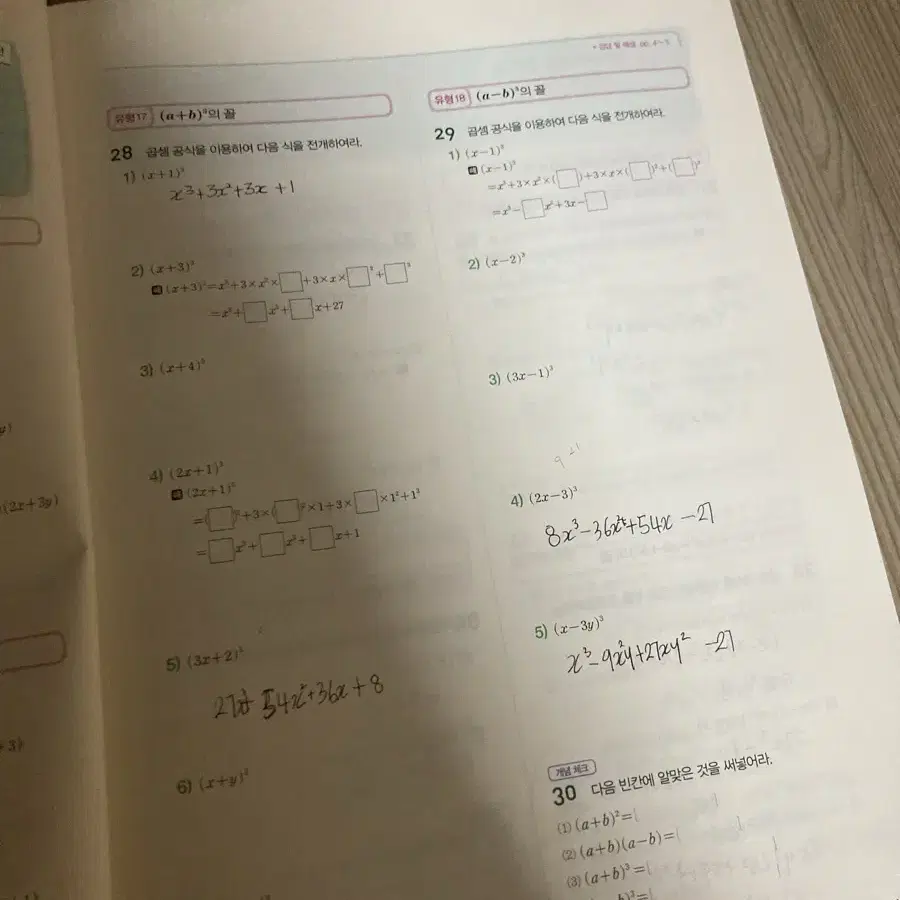 유형17 (a+b)³의 꼴
28 곱셈 공식을 이용하여 다음 식을 전개하여라.
1) (x+1)³
x³+3x²+3x+1
2) (x+3)³
(x+3)³=x³+3×x²×□+3×x×□²+□³
=x³+□x²+□x+27
3) (x+4)³
4) (2x+1)³
(2x+1)³
=(□)³+3×(□)²×1+3×□×1²+1³
=□x³+□x²+□x+1
5) (3x+2)³
54x²+36x+8
6) (x+y)³
유형18 (a-b)³의 꼴
29 곱셈 공식을 이용하여 다음 식을 전개하여라.
1) (x-1)³
(x-1)³
=x³+3×x²×(□)+3×x×(□)²+(□)³
=x³-□x²+3x-□
2) (x-2)³
3) (3x-1)³
4) (2x-3)³
8x³-36x²+54x-27
5) (x-3y)³
x³-9x²y+27xy²-27
개념 체크
30 다음 빈칸에 알맞은 것을 써넣어라.
(1) (a+b)²=(
(2) (a+b)(a-b)=(
(3) (a+b)³=(
(2x+3y)